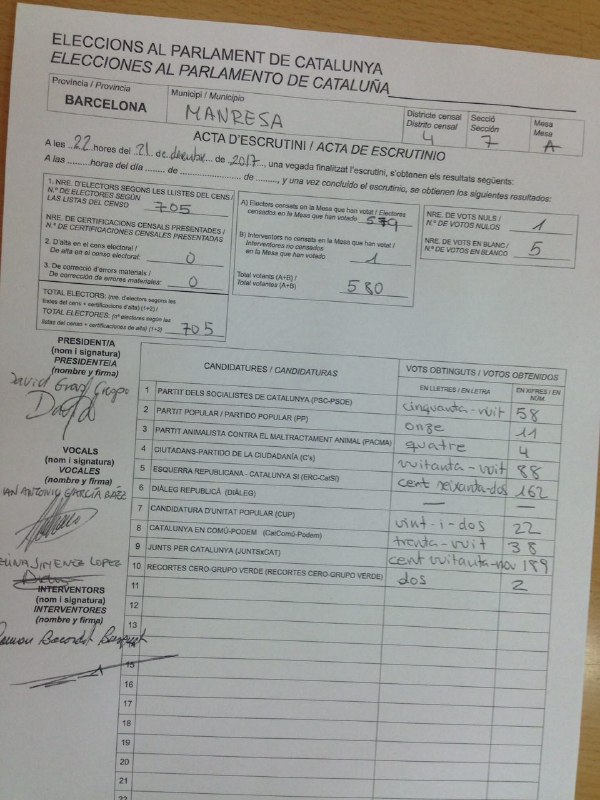 ELECCIONS AL PARLAMENT DE CATALUNYA
ELECCIONES AL PARLAMENTO DE CATALUÑA
Província / Provincia
BARCELONA
Municipi / Municipio
MANRESA
Districte censal
Distrito censal
4
Secció
Sección
7
Mesa
Mesa
A
ACTA D'ESCRUTINI / ACTA DE ESCRUTINIO
A les ...22... hores del 21 de desembre de 2017, una vegada finalitzat l'escrutini, s'obtenen els resultats següents:
A las .........horas del día ........ de .................... de ........, y una vez concluido el escrutinio, se obtienen los siguientes resultados:
1. NRE. D'ELECTORS SEGONS LES LLISTES DEL CENS /
N.º DE ELECTORES SEGÚN
LAS LISTAS DEL CENSO 705
NRE. DE CERTIFICACIONS CENSALS PRESENTADES /
N.º DE CERTIFICACIONES CENSALES PRESENTADAS
2. D'alta en el cens electoral /
De alta en el censo electoral: 0
3. De correcció d'errors materials /
De corrección de errores materiales: 0
TOTAL ELECTORS: (nre. d'electors segons les
llistes del cens + certificacions d'alta) (1+2) /
TOTAL ELECTORES: (nº electores según las
listas del censo + certificaciones de alta) (1+2) 705
A) Electors censats en la Mesa que han votat / Electores
censados en la Mesa que han votado 579
B) Interventors no censats en la Mesa que han votat /
Interventores no censados
en la Mesa que han votado 1
Total votants (A+B) /
Total votantes (A+B) 580
NRE. DE VOTS NULS /
N.º DE VOTOS NULOS 1
NRE. DE VOTS EN BLANC /
N.º DE VOTOS EN BLANCO 5
PRESIDENT/A
(nom i signatura)
PRESIDENTE/A
(nombre y firma)
David
VOCALS
(nom i signatura)
VOCALES
(nombre y firma)
AN ANTONIO GARCÍA BÁEZ
JIMENEZ LOPEZ
INTERVENTORS
(nom i signatura)
INTERVENTORES
(nombre y firma)
CANDIDATURES / CANDIDATURAS
VOTS OBTINGUTS / VOTOS OBTENIDOS
EN LLETRES / EN LETRA
EN XIFRES / EN NÚM.
1 PARTIT DELS SOCIALISTES DE CATALUNYA (PSC-PSOE) cinquanta-vuit 58
2 PARTIT POPULAR / PARTIDO POPULAR (PP) onze 11
3 PARTIT ANIMALISTA CONTRA EL MALTRACTAMENT ANIMAL (PACMA) quatre 4
4 CIUTADANS-PARTIDO DE LA CIUDADANÍA (C's) vuitanta-vuit 88
5 ESQUERRA REPUBLICANA - CATALUNYA SÍ (ERC-CatSí) cent seixanta-dos 162
6 DIÀLEG REPUBLICÀ (DIÀLEG) — —
7 CANDIDATURA D'UNITAT POPULAR (CUP) vint-i-dos 22
8 CATALUNYA EN COMÚ-PODEM (CatComú-Podem) trenta-vuit 38
9 JUNTS PER CATALUNYA (JUNTSxCAT) cent vuitanta-nou 189
10 RECORTES CERO-GRUPO VERDE (RECORTES CERO-GRUPO VERDE) dos 2
11
12
13
14
15
16
17
18
19
20
21
22